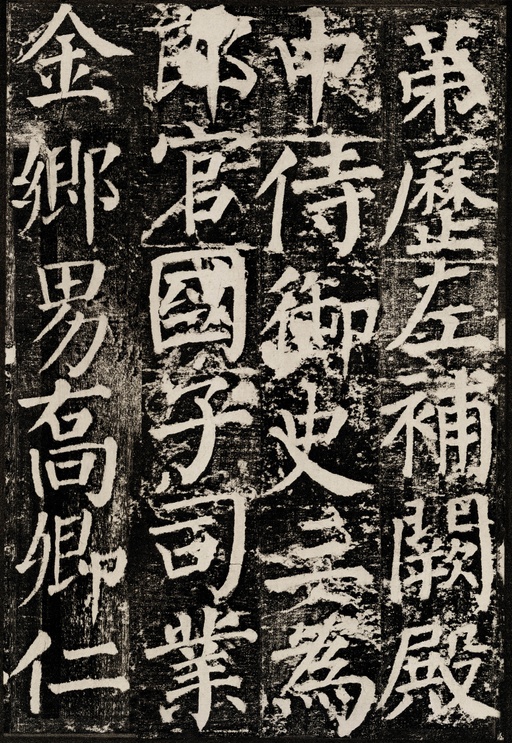 苐歷左補闕殿
中侍御史三為
郎官國子司業
金鄉男喬卿仁